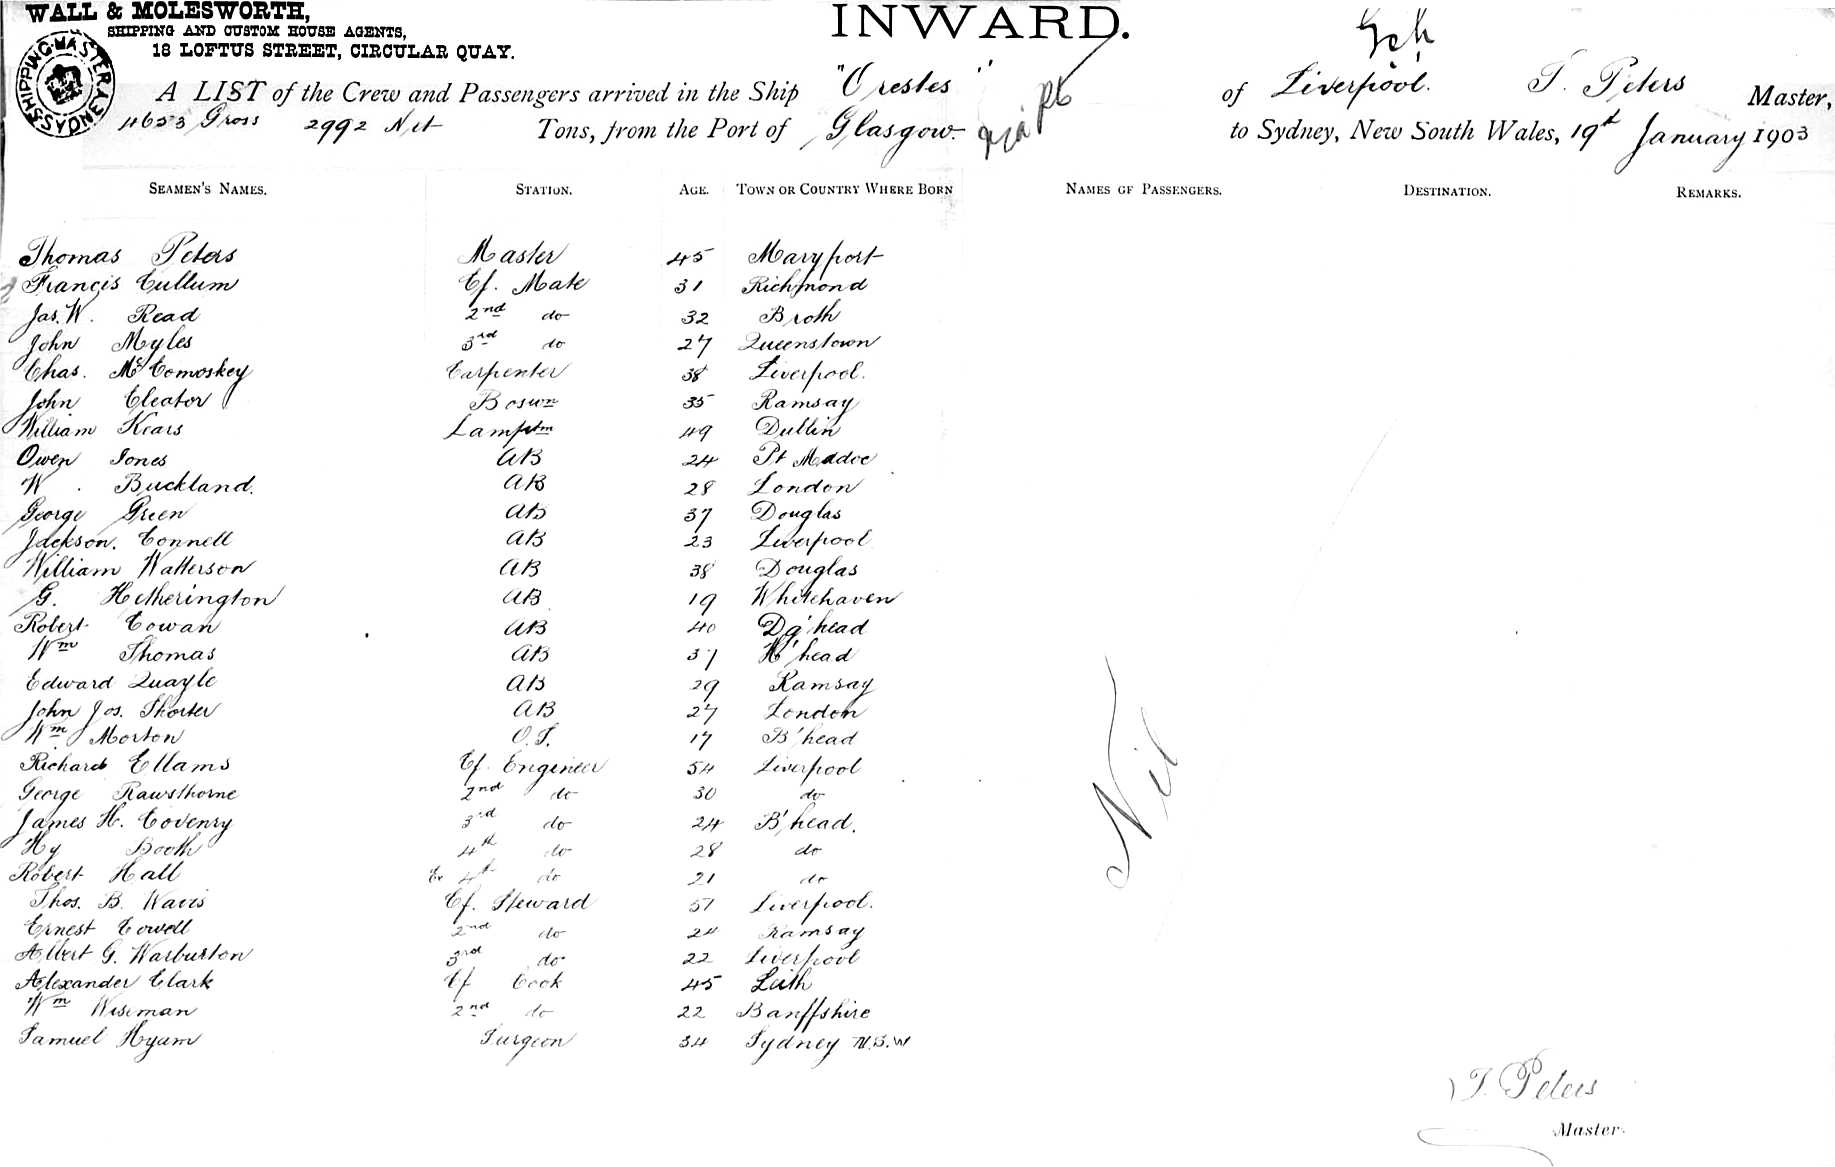 WALL & MOLESWORTH,
SHIPPING AND CUSTOM HOUSE AGENTS,
18 LOFTUS STREET, CIRCULAR QUAY.
INWARD.
SHIPPING MASTER SYDNEY
A LIST of the Crew and Passengers arrived in the Ship "Orestes" of Liverpool. T. Peters Master,
4653 Gross 2992 Net Tons, from the Port of Glasgow to Sydney, New South Wales, 19th January 1903
SEAMEN'S NAMES. STATION. AGE. TOWN OR COUNTRY WHERE BORN NAMES OF PASSENGERS. DESTINATION. REMARKS.
Thomas Peters Master 45 Maryport
Francis Cullum Cf. Mate 31 Richmond
Jas. W. Read 2nd do 32 Broth
John Myles 3rd do 27 Queenstown
Chas. McComoskey Carpenter 38 Liverpool.
John Cleator Boswn 35 Ramsay
William Kears Lamptm 49 Dublin
Owen Jones AB 24 Pt Madoc
W. Buckland. AB 28 London
George Green AB 37 Douglas
Jackson. Connell AB 23 Liverpool
William Watterson AB 38 Douglas
G. Hetherington AB 19 Whitehaven
Robert Cowan AB 40 head
Wm Thomas AB 37 H'head
Edward Quayle AB 29 Ramsay
John Jos. Shorter AB 27 London
Wm Morton O.S. 17 B'head
Richard Ellams Cf. Engineer 54 Liverpool
George Rawsthorne 2nd do 30 do
James H. Covenry 3rd do 24 B'head.
Hy Booth 4th do 28 do
Robert Hall 4th do 21 do
Thos. B. Cf. Steward 51 Liverpool.
Ernest Cowell 2nd do 24 Ramsay
Albert G. Warburton 3rd do 22 Liverpool
Alexander Clark Cf Cook 45 Leith
Wm Wiseman 2nd do 22 Banffshire
Samuel Hyam Surgeon 34 Sydney N.S.W
Nil
T. Peters
Master.